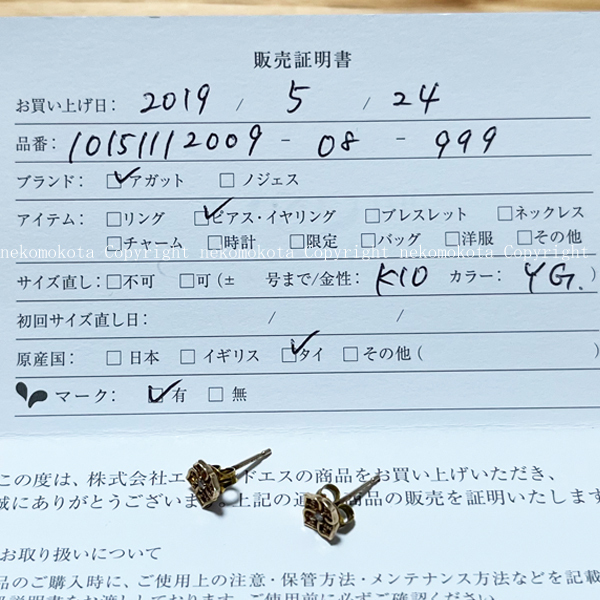 販売証明書
お買い上げ日: 2019 / 5 / 24
品番: 10151112009 - 08 - 999
ブランド: ☑アガット □ ノジェス
アイテム: □リング ☑ピアス・イヤリング □ブレスレット □ネックレス
□チャーム □時計 □限定 □バッグ □洋服 □その他
nekomokota Copyright nekomokota Copyright nekomokota Copyright
サイズ直し: □不可 □可(± 号まで/金性: K10 カラー: YG. )
初回サイズ直し日: / /
原産国: □ 日本 □ イギリス ☑タイ □ その他( )
マーク: ☑有 □ 無
この度は、株式会社エ ドエスの商品をお買い上げいただき、
誠にありがとうございま 。上記の通 商品の販売を証明いたします
お取り扱いについて
品のご購入時に、ご使用上の注意・保管方法・メンテナンス方法などを記載
説明書をお渡ししております。ご使用前に必ずご確認ください